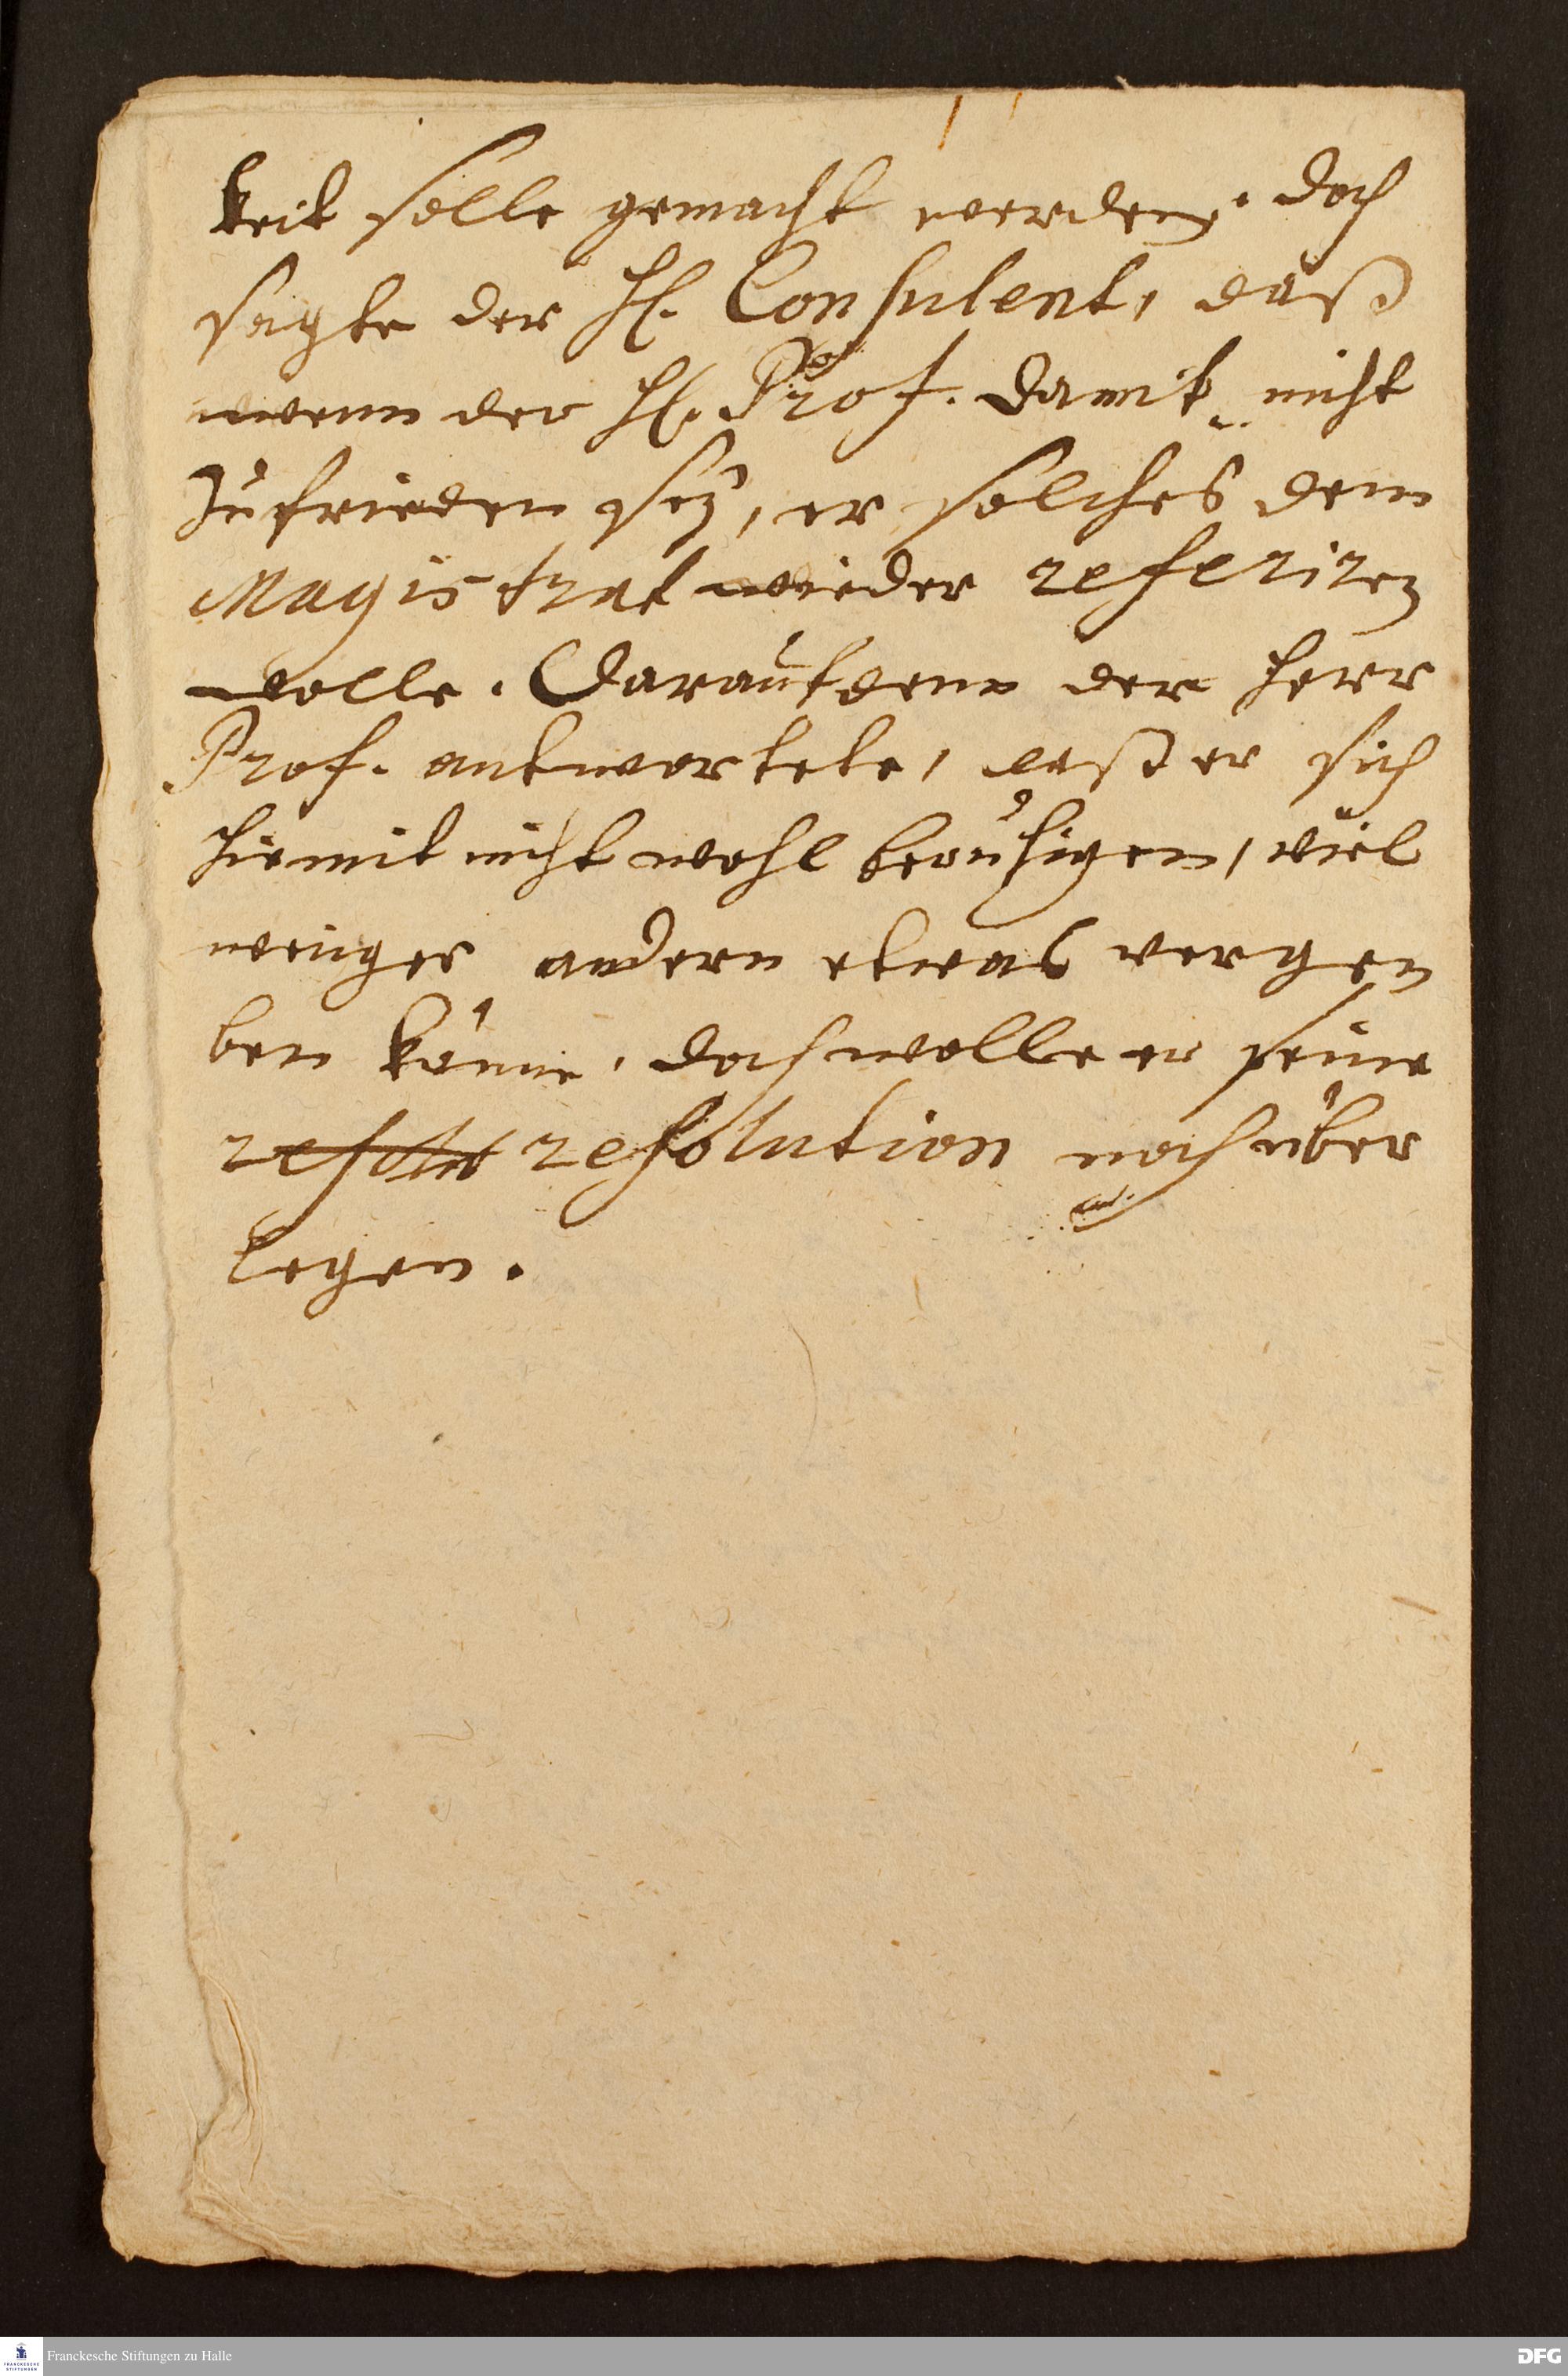 keit solle gemacht werden. doch
sagte der H. Consulent, daß
wenn der H. Prof. damit nicht
zufrieden sey, er solches dem
Magistrat wieder referiren
wolle. Darauf denn der Herr
Prof. antwortete, daß er sich
hiemit nicht wohl beruhigen, viel
weniger andern etwas verge
ben könne, doch wolle er seine
resolution noch über
legen.
Franckesche Stiftungen zu Halle
DFG